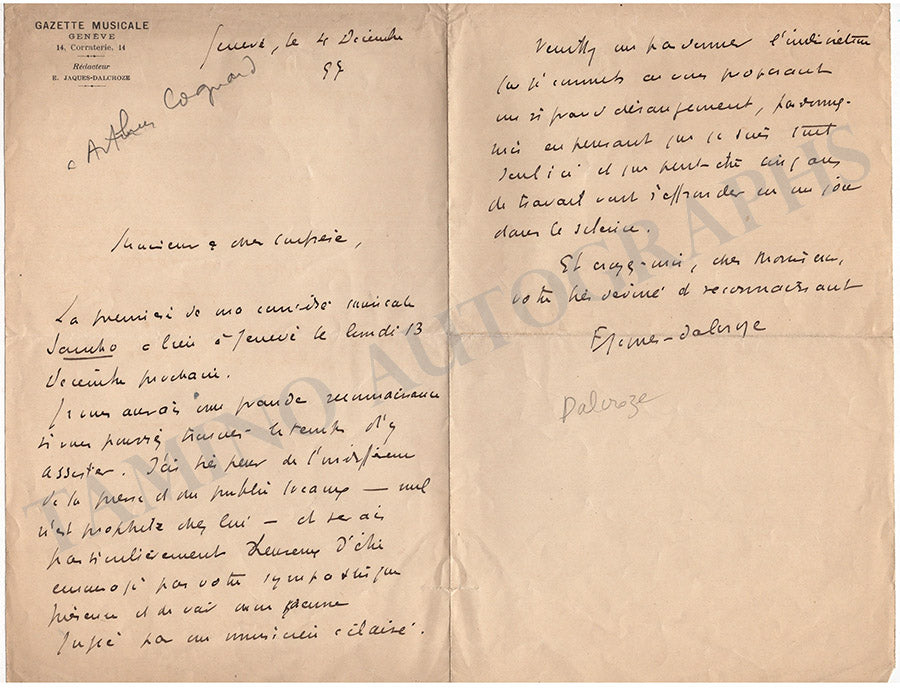 GAZETTE MUSICALE
GENÈVE
14, Corraterie, 14
Rédacteur
E. JAQUES-DALCROZE
Genève, le 4 Décembre
97
Arthur Coquard
Monsieur & cher Confrère,
La première de ma comédie musicale
Sancho a lieu à Genève le lundi 13
décembre prochain.
Je vous aurais une grande reconnaissance
si vous pouviez trouver le temps d'y
assister. J'ai très peur de l'indifférence
de la presse et du public locaux — nul
n'est prophète chez lui — et serais
particulièrement heureux d'être
encouragé par votre sympathique
présence et de voir mon œuvre
jugée par un musicien éclairé.
Veuillez me pardonner l'indiscrétion
que je commets en vous proposant
un si grand dérangement, pardonnez-
moi en pensant que je suis tout
seul ici et que peut-être cinq ans
de travail vont s'effondrer en un jour
dans le silence.
Et croyez-moi, cher Monsieur,
votre très dévoué et reconnaissant
E Jaques-Dalcroze
Dalcroze
TAMINO AUTOGRAPHS